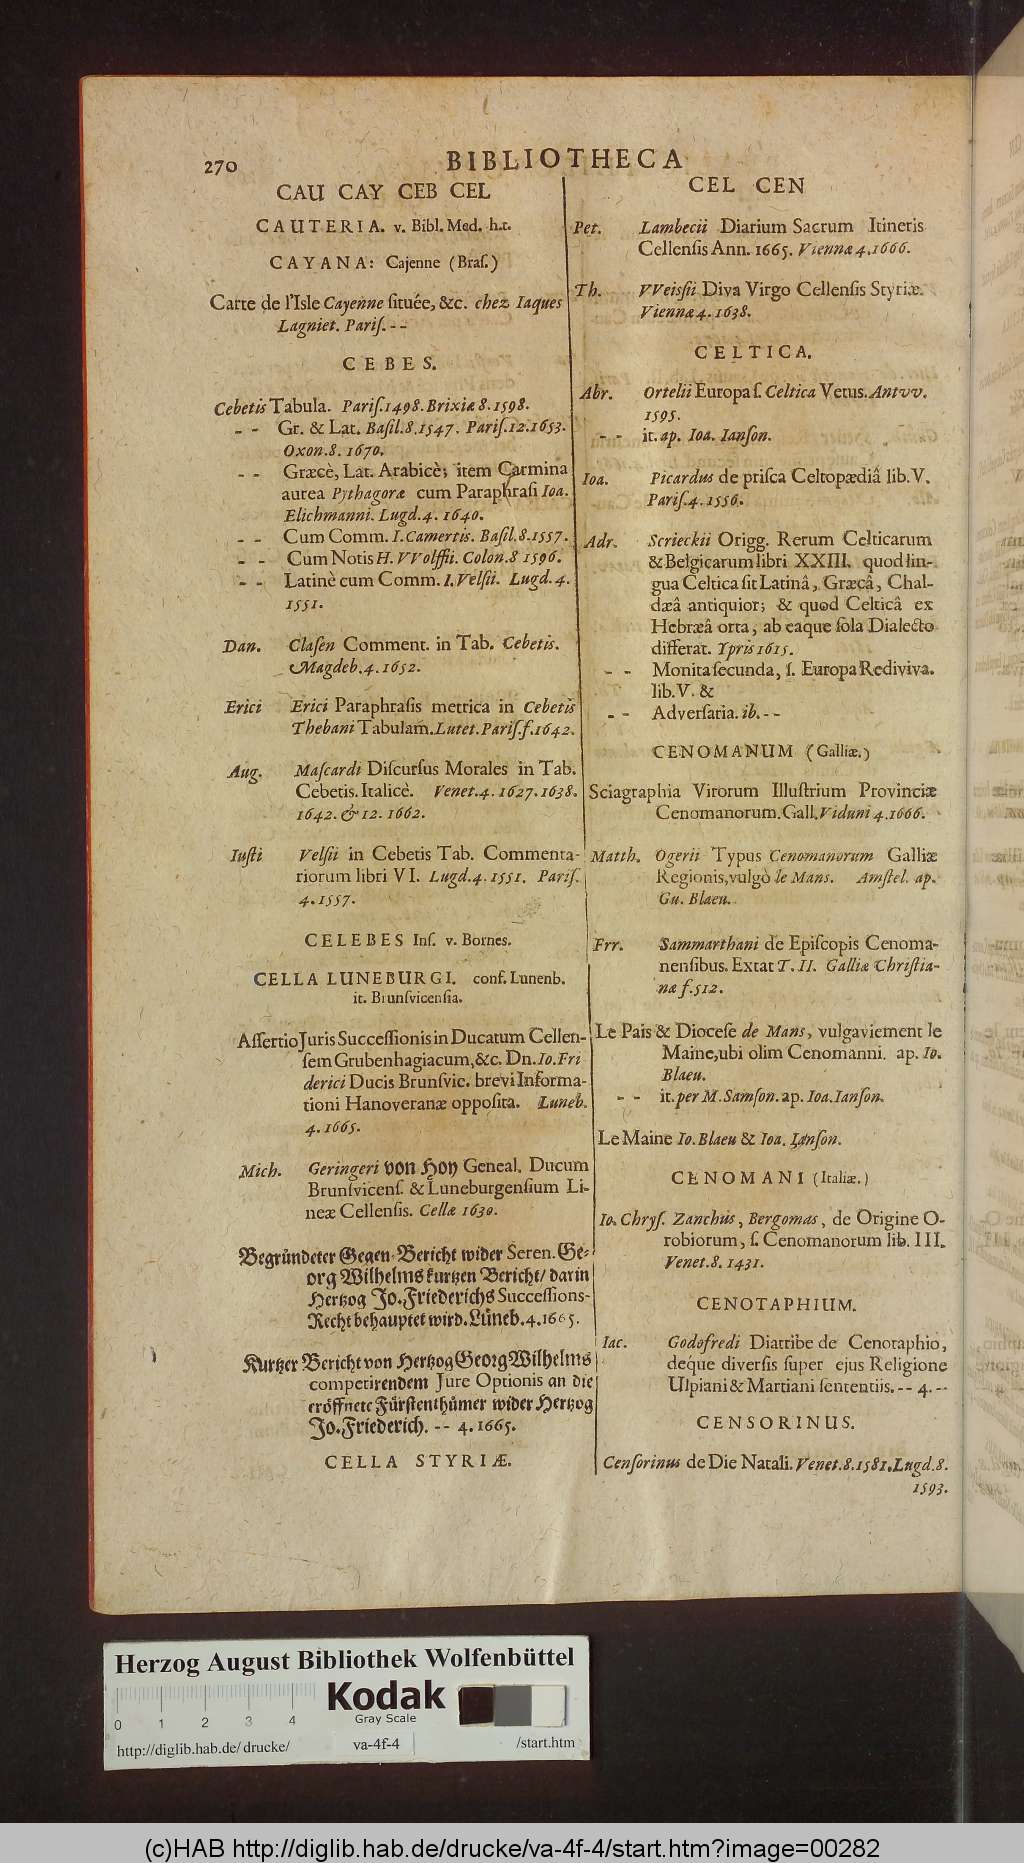 270
BIBLIOTHECA
CAU CAY CEB CEL
CAUTERIA. v. Bibl. Med. h.t.
CAYANA: Cajenne (Braſ.)
Carte de l'Isle Cayenne ſituée, &c. chez Iaques
Lagniet. Pariſ. --
CEBES.
Cebetis Tabula. Pariſ. 1498. Brixiæ 8. 1598.
-- Gr. & Lat. Baſil. 8. 1547. Pariſ. 12. 1653.
Oxon. 8. 1670.
-- Græcè, Lat. Arabicè; item Carmina
aurea Pythagoræ cum Paraphraſi Ioa.
Elichmanni. Lugd. 4. 1640.
-- Cum Comm. I. Camertis. Baſil. 8. 1557.
-- Cum Notis H. VVolffii. Colon. 8 1596.
-- Latinè cum Comm. I. Velſii. Lugd. 4.
1551.
Dan. Claſen Comment. in Tab. Cebetis.
Magdeb. 4. 1652.
Erici Erici Paraphraſis metrica in Cebetis
Thebani Tabulam. Lutet. Pariſ. f. 1642.
Aug. Maſcardi Diſcurſus Morales in Tab.
Cebetis. Italicè. Venet. 4. 1627. 1638.
1642. & 12. 1662.
Iuſti Velſii in Cebetis Tab. Commenta-
riorum libri VI. Lugd. 4. 1551. Pariſ.
4. 1557.
CELEBES Inſ. v. Bornes.
CELLA LUNEBURGI. conf. Lunenb.
it. Brunſvicenſia.
Aſſertio Juris Succeſſionis in Ducatum Cellen-
ſem Grubenhagiacum, &c. Dn. Io. Fri
derici Ducis Brunſvic. brevi Informa-
tioni Hanoveranæ oppoſita. Luneb.
4. 1665.
Mich. Geringeri von Hoy Geneal. Ducum
Brunſvicenſ. & Luneburgenſium Li-
neæ Cellenſis. Cellæ 1630.
Begründeter Gegen-Bericht wider Seren. Ge-
org Wilhelms kurtzen Bericht/ darin
Hertzog Jo. Friederichs Succeſſions-
Recht behauptet wird. Lüneb. 4. 1665.
Kurtzer Bericht von Hertzog Georg Wilhelms
competirendem Jure Optionis an die
eröffnete Fürſtenthümer wider Hertzog
Jo. Friederich. -- 4. 1665.
CELLA STYRIÆ.
CEL CEN
Pet. Lambecii Diarium Sacrum Itineris
Cellenſis Ann. 1665. Viennæ 4. 1666.
Th. VVeisſii Diva Virgo Cellenſis Styriæ.
Viennæ 4. 1638.
CELTICA.
Abr. Ortelii Europa ſ. Celtica Vetus. Antvv.
1595.
-- it. ap. Ioa. Ianſon.
Ioa. Picardus de priſca Celtopædiâ lib. V.
Pariſ. 4. 1556.
Adr. Scrieckii Origg. Rerum Celticarum
& Belgicarum libri XXIII. quod lin-
gua Celtica ſit Latinâ, Græcâ, Chal-
dæâ antiquior; & quod Celticâ ex
Hebræâ orta, ab eaque ſola Dialecto
differat. Ypris 1615.
-- Monita ſecunda, ſ. Europa Rediviva.
lib. V. &
-- Adverſaria. ib. --
CENOMANUM (Galliæ.)
Sciagraphia Virorum Illuſtrium Provinciæ
Cenomanorum. Gall. Viduni 4. 1666.
Matth. Ogerii Typus Cenomanorum Galliæ
Regionis, vulgò le Mans. Amſtel. ap.
Gu. Blaeu.
Frr. Sammarthani de Epiſcopis Cenoma-
nenſibus. Extat T. II. Galliæ Chriſtia-
næ f. 512.
Le Pais & Dioceſe de Mans, vulgaviement le
Maine, ubi olim Cenomanni. ap. Io.
Blaeu.
-- it. per M. Samſon. ap. Ioa. Ianſon.
Le Maine Io. Blaeu & Ioa. Ianſon.
CENOMANI (Italiæ.)
Io. Chryſ. Zanchus, Bergomas, de Origine O-
robiorum, ſ. Cenomanorum lib. III.
Venet. 8. 1431.
CENOTAPHIUM.
Iac. Godofredi Diatribe de Cenotaphio,
deque diverſis ſuper ejus Religione
Ulpiani & Martiani ſententiis. -- 4. --
CENSORINUS.
Cenſorinus de Die Natali. Venet. 8. 1581. Lugd. 8.
1593.
Herzog August Bibliothek Wolfenbüttel
Kodak
Gray Scale
0 1 2 3 4
http://diglib.hab.de/drucke/ va-4f-4 /start.htm
(c)HAB http://diglib.hab.de/drucke/va-4f-4/start.htm?image=00282